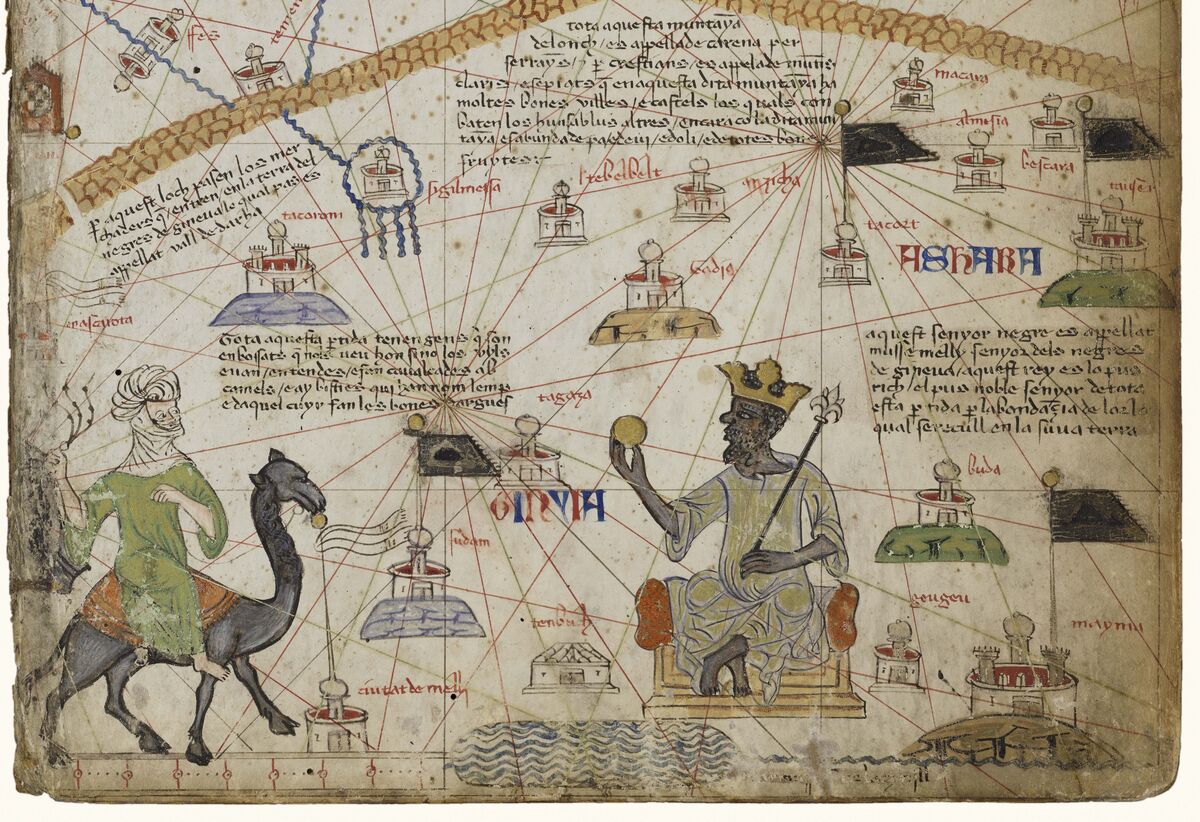 fes
tota aquesta muntãya
de lonch / es appellade carena per
serrayns / ⁊ per crestians / es appelade muntis
claris / e sepiats q̃ en aquesta dita muntãya ha
moltes bones villes / e castels los quals con
baten los huns ab lus altres / encara co la dita mun
tãya es abunda de pa e de vi / e doli / e de totes bones
fruytes
macara
almsia
bescara
P aquest loch pasen los mer
chaders q̃ entren en la terra del
negres de gineua lo qual pas es
appellat vall de darha
sigilmessa
tacoroni
anzicha
tacort
ASHARA
tota aquesta ptida tenen gens q̃ son
enbosats q̃ nols veu hom sino los uyls
e van / en tendes / e fan caualcades ab
camels / e ay bisties qui han nom lemp
e daquel cuyr fan les bones dargues
aquest senyor negre es appellat
musse melly senyor dels negres
de gineua / aquest rey es lo pus
rich / el pus noble senyor de tota
esta ptida p labondãcia de lor lo
qual se recull en la suua terra
tagaza
GINYIA
buda
sudam
tenbuch
geugeu
mayma
ciutat de melli